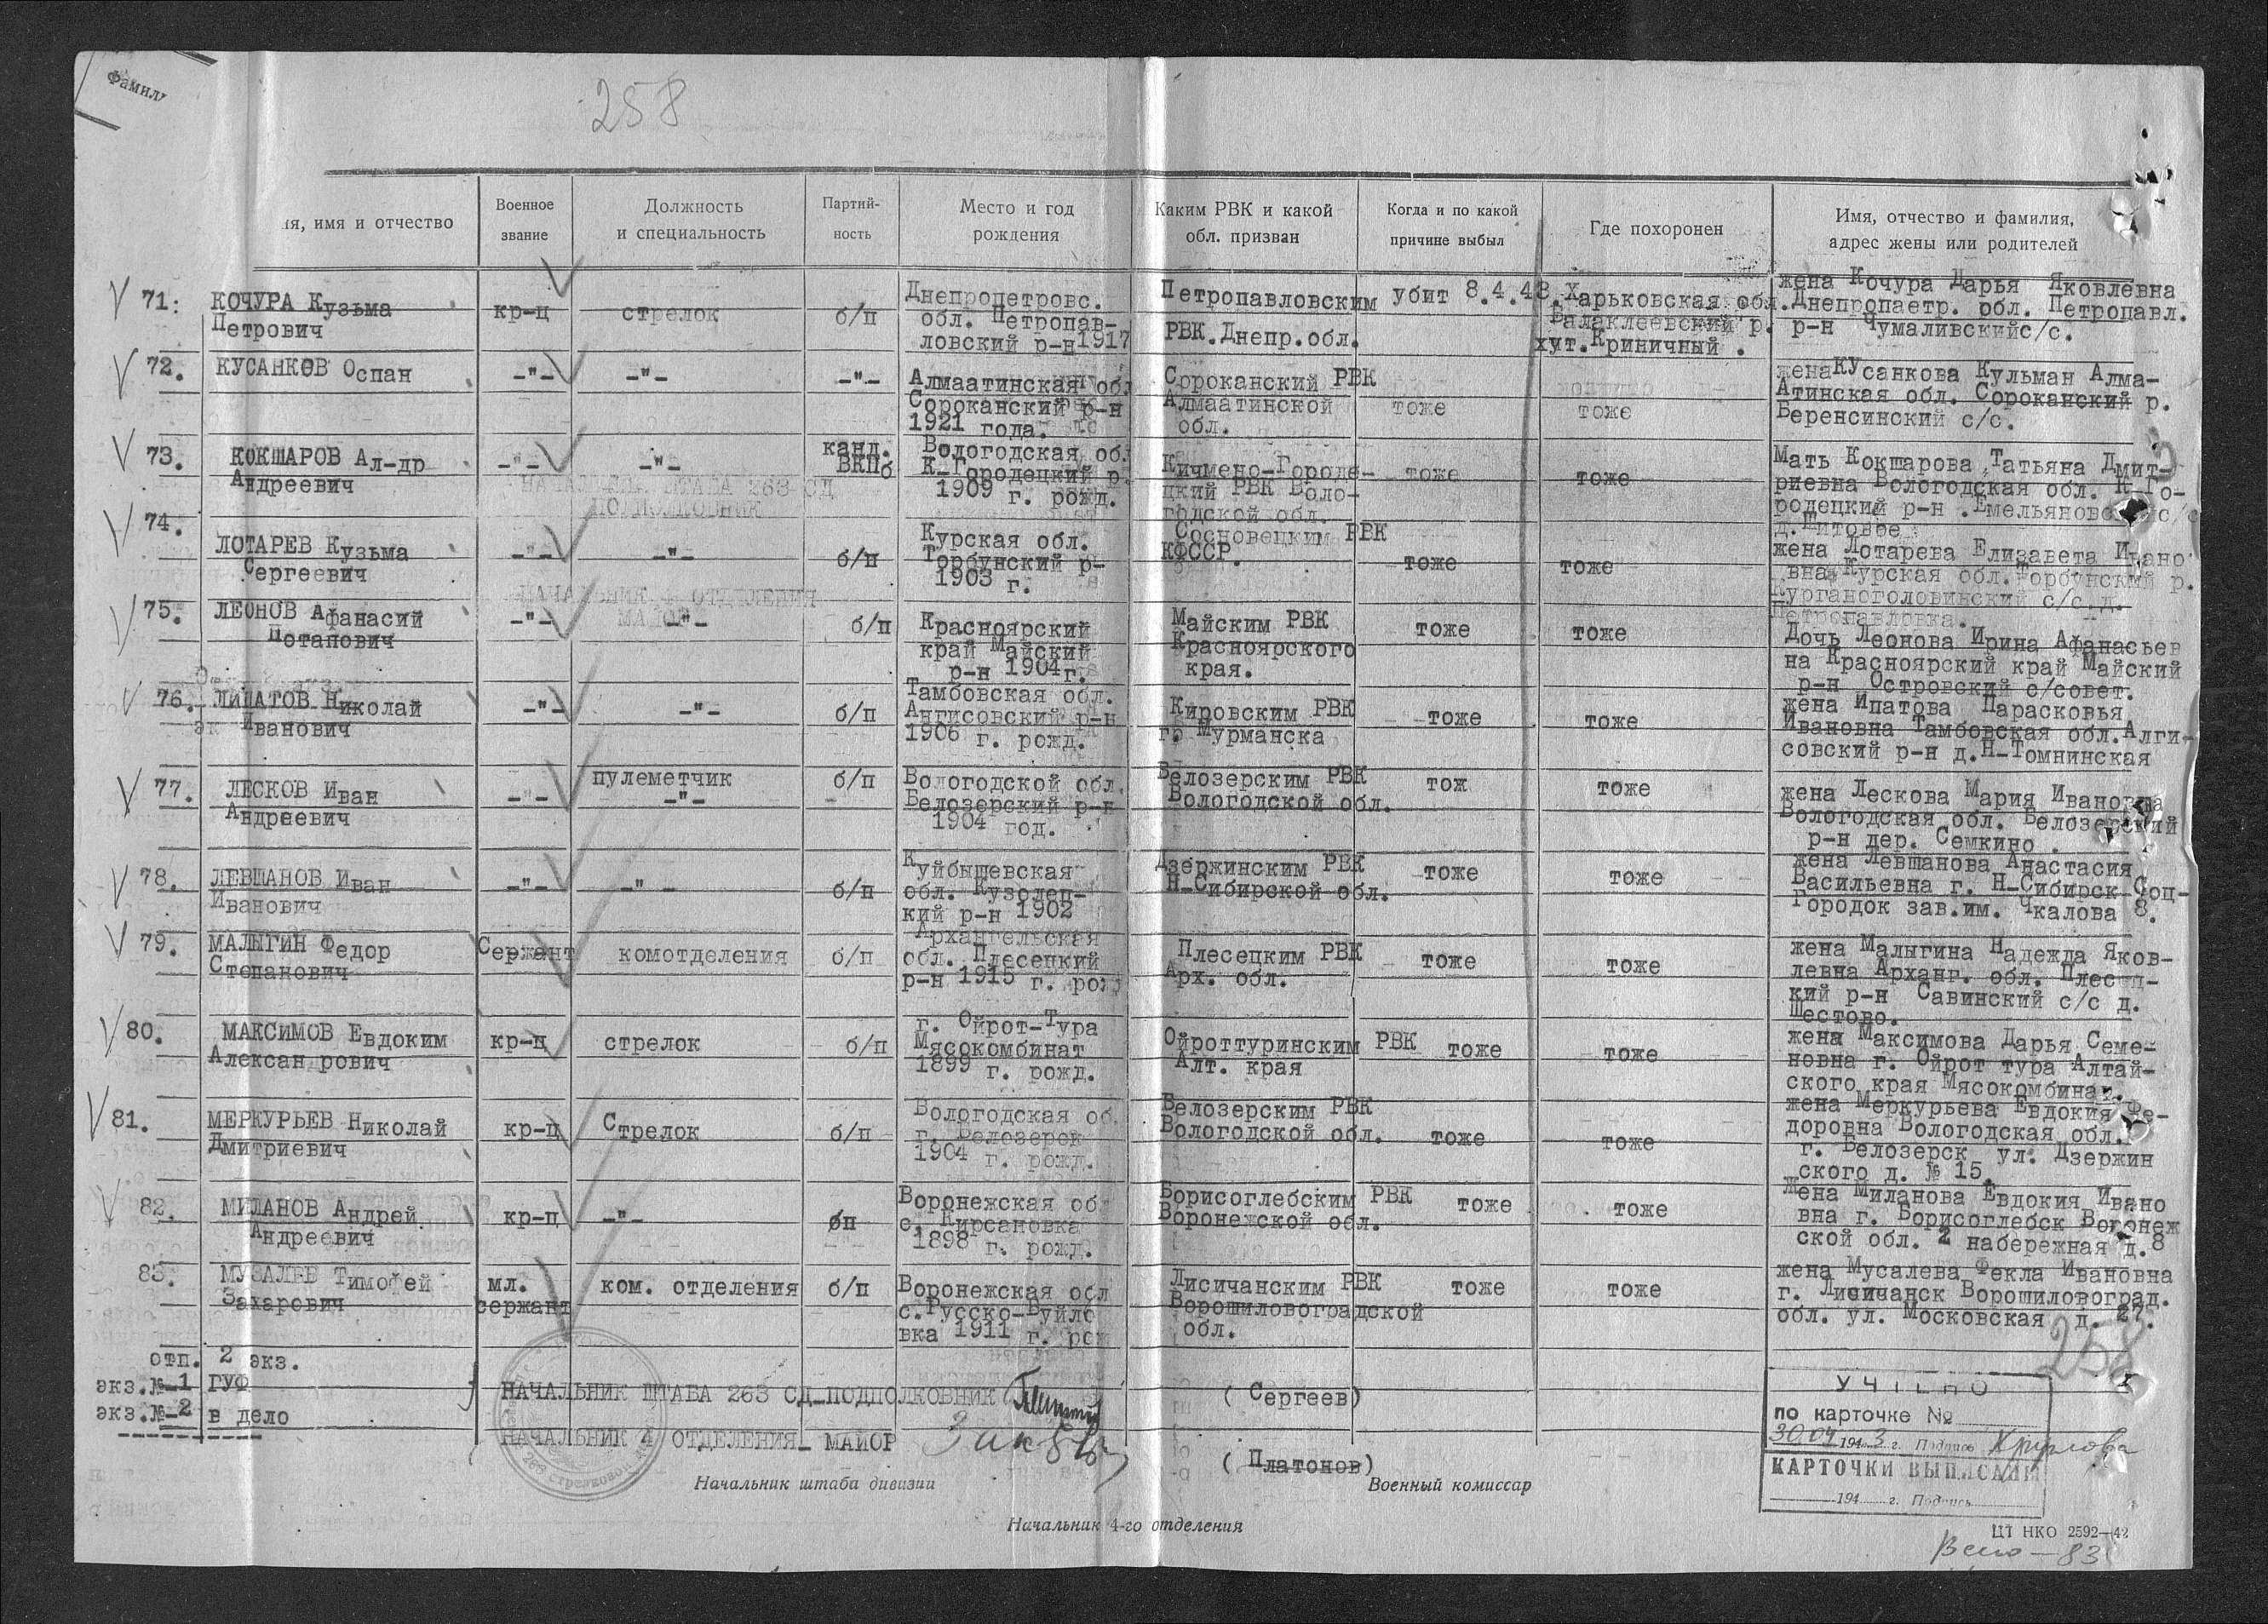 258
Фамил
ия, имя и отчество
Военное звание
Должность и специальность
Партий-ность
Место и год рождения
Каким РВК и какой обл. призван
Когда и по какой причине выбыл
Где похоронен
Имя, отчество и фамилия, адрес жены или родителей
71. КОЧУРА Кузьма Петрович
кр-ц
стрелок
б/п
Днепропетровс.
обл. Петропав-
ловский р-н 1917
Петропавловским
РВК.Днепр.обл.
убит 8.4.43
Харьковская обл.
Балаклеевский р.
хут.Криничный .
жена Кочура Дарья Яковлевна
Днепропаетр. обл. Петропавл.
р-н Чумаливскийс/с.
72. КУСАНКОВ Оспан
-"-
-"-
-"-
Алмаатинская об
Сороканский р-н
1921 года.
Сороканский РВК
Алмаатинской
обл.
тоже
тоже
женаКУсанкова Кульман Алма-
Атинская обл. Сороканский р.
Беренсинский с/с.
73. КОКШАРОВ Ал-др
Андреевич
-"-
-"-
канд.
ВКПб
Вологодская об
К-Городецкий р
1909 г. рожд.
Кичмено-Городе-
цкий РВК Воло-
годской обл.
тоже
тоже
Мать Кокшарова Татьяна Дмит-
риевна Вологодская обл. К-Го-
родецкий р-н .Емельяновс
д.Титовое
74. ЛОТАРЕВ Кузьма
Сергеевич
-"-
-"-
б/п
Курская обл.
Торбунский р-
1903 г.
Сосновецким РВК
КФССР.
тоже
тоже
жена Лотарева Елизавета Ивано
вна Курская обл.Торбунский р.
Курганоголовинский с/с.д.
Петропавловка.
75. ЛЕОНОВ Афанасий
Потапович
-"-
-"-
б/п
Красноярский
край Майский
р-н 1904г.
Майским РВК
Красноярского
края.
тоже
тоже
Дочь Леонова Ирина Афанасьев
на Красноярский край Майский
р-н Островский с/совет.
76. ЛИПАТОВ Николай
Иванович
-"-
-"-
б/п
Тамбовская обл.
Ангисовский р-н
1906 г. рожд.
Кировским РВК
г. Мурманска
тоже
тоже
жена Ипатова Парасковья
Ивановна Тамбовская обл.Алги-
совский р-н д.Н-Томнинская
77. ЛЕСКОВ Иван
Андреевич
-"-
пулеметчик
-"-
б/п
Вологодской обл.
Белозерский р-н
1904 год.
Белозерским РВК
Вологодской обл.
тож
тоже
жена Лескова Мария Ивановна
Вологодская обл. Белозерский
р-н дер. Семкино .
78. ЛЕВШАНОВ Иван
Иванович
-"-
-" -
б/п
Куйбышевская
обл. Кузолец-
кий р-н 1902
Дзержинским РВК
Н-Сибирской обл.
тоже
тоже
жена Левшанова Анастасия
Васильевна г. Н-Сибирск Соц-
городок зав.им. Чкалова 8.
79. МАЛЫГИН Федор
Степанович
Сержант
комотделения
б/п
Архангельская
обл. Плесецкий
р-н 1915 г. рожд
Плесецким РВК
Арх. обл.
тоже
тоже
жена Малыгина Надежда Яков-
левна Арханг. обл. Плесец-
кий р-н Савинский с/с д.
Шестово.
80. МАКСИМОВ Евдоким
Алексан рович
кр-ц
стрелок
б/п
г. Ойрот-Тура
Мясокомбинат
1899 г. рожд.
Ойроттуринским РВК
Алт. края
тоже
тоже
жена Максимова Дарья Семе-
новна г. Ойрот тура Алтай-
ского края Мясокомбинат.
81. МЕРКУРЬЕВ Николай
Дмитриевич
кр-ц
Стрелок
б/п
Вологодская об
г. Белозерск
1904 г. рожд.
Белозерским РВК
Вологодской обл.
тоже
тоже
жена Меркурьева Евдокия Фе-
доровна Вологодская обл.
г. Белозерск ул. Дзержин
ского д. № 15.
82. МИЛАНОВ Андрей
Андреевич
кр-ц
-"-
бп
Воронежская об
с. Кирсановка
1898 г. рожд.
Борисоглебским РВК
Воронежской обл.
тоже
тоже
Жена Миланова Евдокия Ивано
вна г. Борисоглебск Воронеж
ской обл. 2 набережная д.8
83. МУЗАЛЕВ Тимофей
Захарович
мл.
сержант
ком. отделения
б/п
Воронежская обл
с.Русско-Буйло
вка 1911 г. рож
Лисичанским РВК
Ворошиловоградской
обл.
тоже
тоже
жена Мусалева Фекла Ивановна
г. Лисичанск Ворошиловоград.
обл. ул. Московская д. 27.
258
отп. 2 экз.
экз.№-1 ГУФ
экз.№-2 в дело
НАЧАЛЬНИК ШТАБА 263 СД-ПОДПОЛКОВНИК
( Сергеев)
НАЧАЛЬНИК 4 ОТДЕЛЕНИЯ- МАЙОР
( Платонов)
Начальник штаба дивизии
Военный комиссар
Начальник 4-го отделения
УЧТЕНО
по карточке №
30 04 1943 г. Подпись Крылова
КАРТОЧКИ ВЫПИСАНЫ
194 г. Подпись
ЦТ НКО 2592—42
Всего — 83